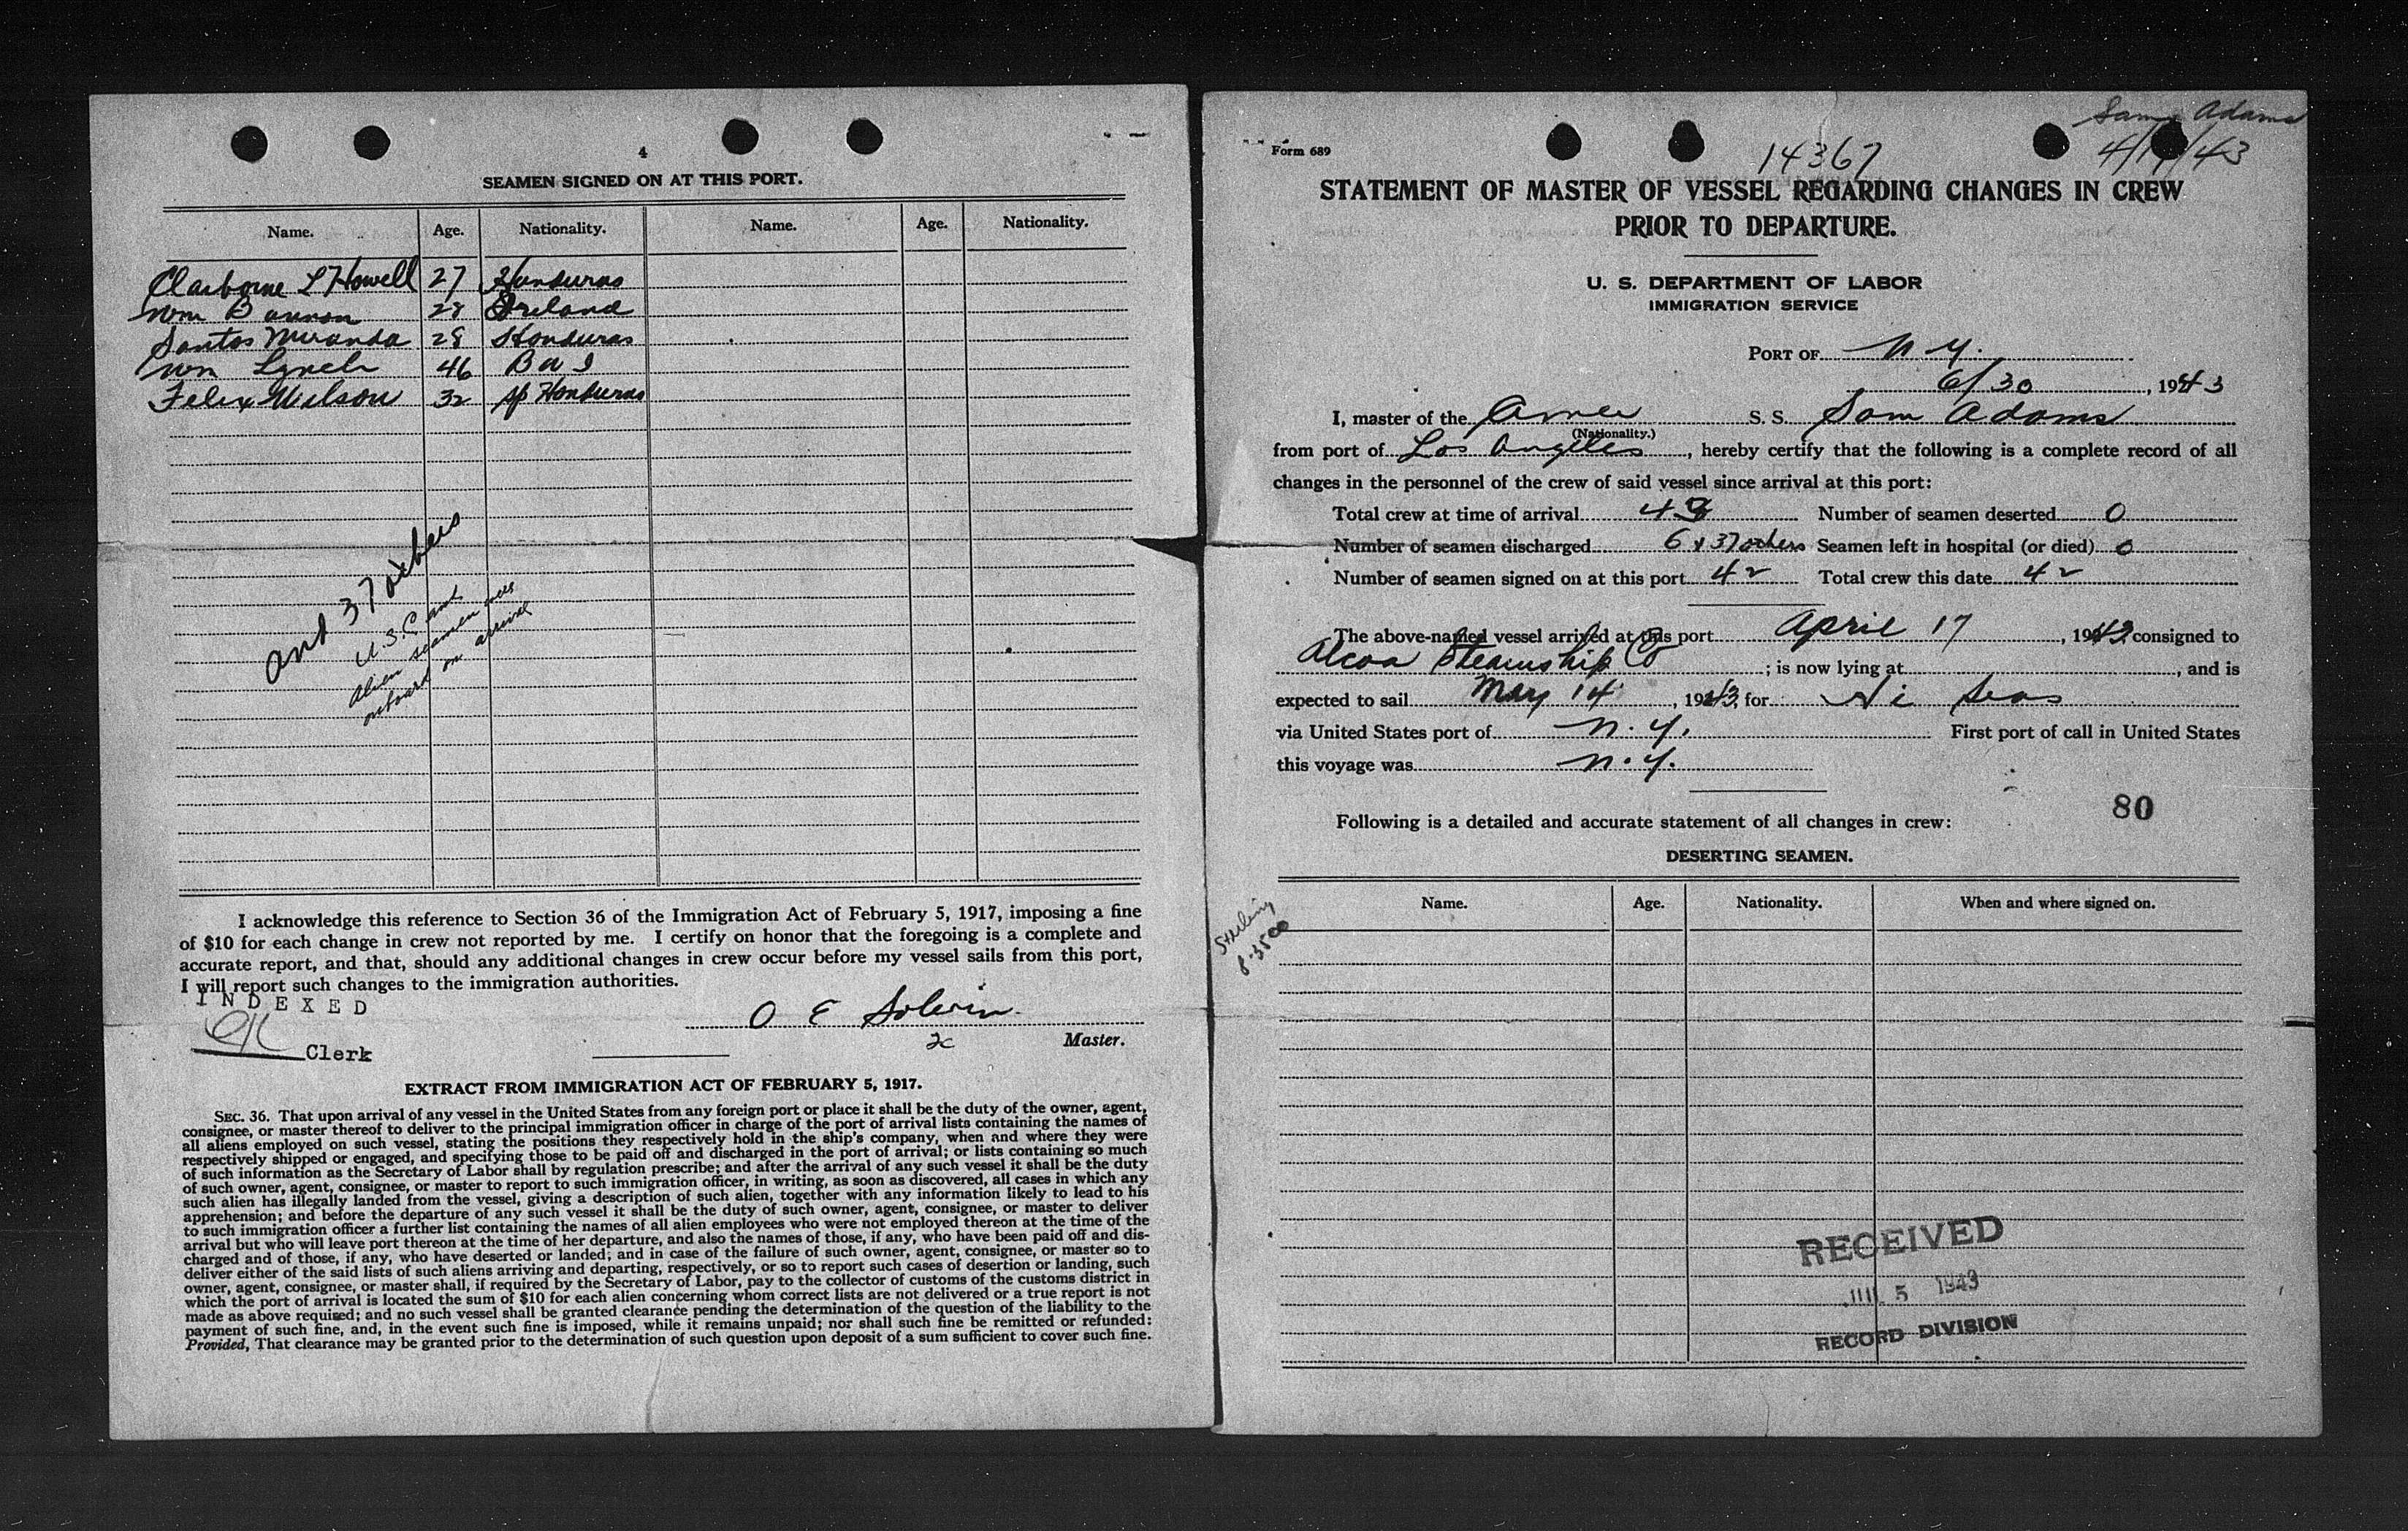 4
SEAMEN SIGNED ON AT THIS PORT.
Name. Age. Nationality. Name. Age. Nationality.
Claiborne L Howell 27 Honduras
Wm Bannon 28 Ireland
Santos Miranda 28 Honduras
Wm Lynch 46 B W I
Felix Wilson 32 Sp Honduras
and 37 others
U.S.C and
alien seamen was
onboard on arrival
I acknowledge this reference to Section 36 of the Immigration Act of February 5, 1917, imposing a fine
of $10 for each change in crew not reported by me. I certify on honor that the foregoing is a complete and
accurate report, and that, should any additional changes in crew occur before my vessel sails from this port,
I will report such changes to the immigration authorities.
INDEXED
Clerk
O E
Master.
EXTRACT FROM IMMIGRATION ACT OF FEBRUARY 5, 1917.
SEC. 36. That upon arrival of any vessel in the United States from any foreign port or place it shall be the duty of the owner, agent,
consignee, or master thereof to deliver to the principal immigration officer in charge of the port of arrival lists containing the names of
all aliens employed on such vessel, stating the positions they respectively hold in the ship's company, when and where they were
respectively shipped or engaged, and specifying those to be paid off and discharged in the port of arrival; or lists containing so much
of such information as the Secretary of Labor shall by regulation prescribe; and after the arrival of any such vessel it shall be the duty
of such owner, agent, consignee, or master to report to such immigration officer, in writing, as soon as discovered, all cases in which any
such alien has illegally landed from the vessel, giving a description of such alien, together with any information likely to lead to his
apprehension; and before the departure of any such vessel it shall be the duty of such owner, agent, consignee, or master to deliver
to such immigration officer a further list containing the names of all alien employees who were not employed thereon at the time of the
arrival but who will leave port thereon at the time of her departure, and also the names of those, if any, who have been paid off and dis-
charged and of those, if any, who have deserted or landed; and in case of the failure of such owner, agent, consignee, or master so to
deliver either of the said lists of such aliens arriving and departing, respectively, or so to report such cases of desertion or landing, such
owner, agent, consignee, or master shall, if required by the Secretary of Labor, pay to the collector of customs of the customs district in
which the port of arrival is located the sum of $10 for each alien concerning whom correct lists are not delivered or a true report is not
made as above required; and no such vessel shall be granted clearance pending the determination of the question of the liability to the
payment of such fine, and, in the event such fine is imposed, while it remains unpaid; nor shall such fine be remitted or refunded:
Provided, That clearance may be granted prior to the determination of such question upon deposit of a sum sufficient to cover such fine.
Sam Adams
Form 689
14367
4/17/43
STATEMENT OF MASTER OF VESSEL REGARDING CHANGES IN CREW
PRIOR TO DEPARTURE.
U. S. DEPARTMENT OF LABOR
IMMIGRATION SERVICE
PORT OF N Y.
6/30, 1943
I, master of the Amer S. S. Sam Adams
(Nationality.)
from port of Los Angeles, hereby certify that the following is a complete record of all
changes in the personnel of the crew of said vessel since arrival at this port:
Total crew at time of arrival 43 Number of seamen deserted 0
Number of seamen discharged 6 & 37 others Seamen left in hospital (or died) 0
Number of seamen signed on at this port 42 Total crew this date 42
The above-named vessel arrived at this port April 17, 1943 consigned to
Alcoa Steamship Co; is now lying at, and is
expected to sail May 14, 1943, for Seas
via United States port of N. Y. First port of call in United States
this voyage was N. Y.
80
Following is a detailed and accurate statement of all changes in crew:
DESERTING SEAMEN.
Name. Age. Nationality. When and where signed on.
RECEIVED
JUL 5 1943
RECORD DIVISION